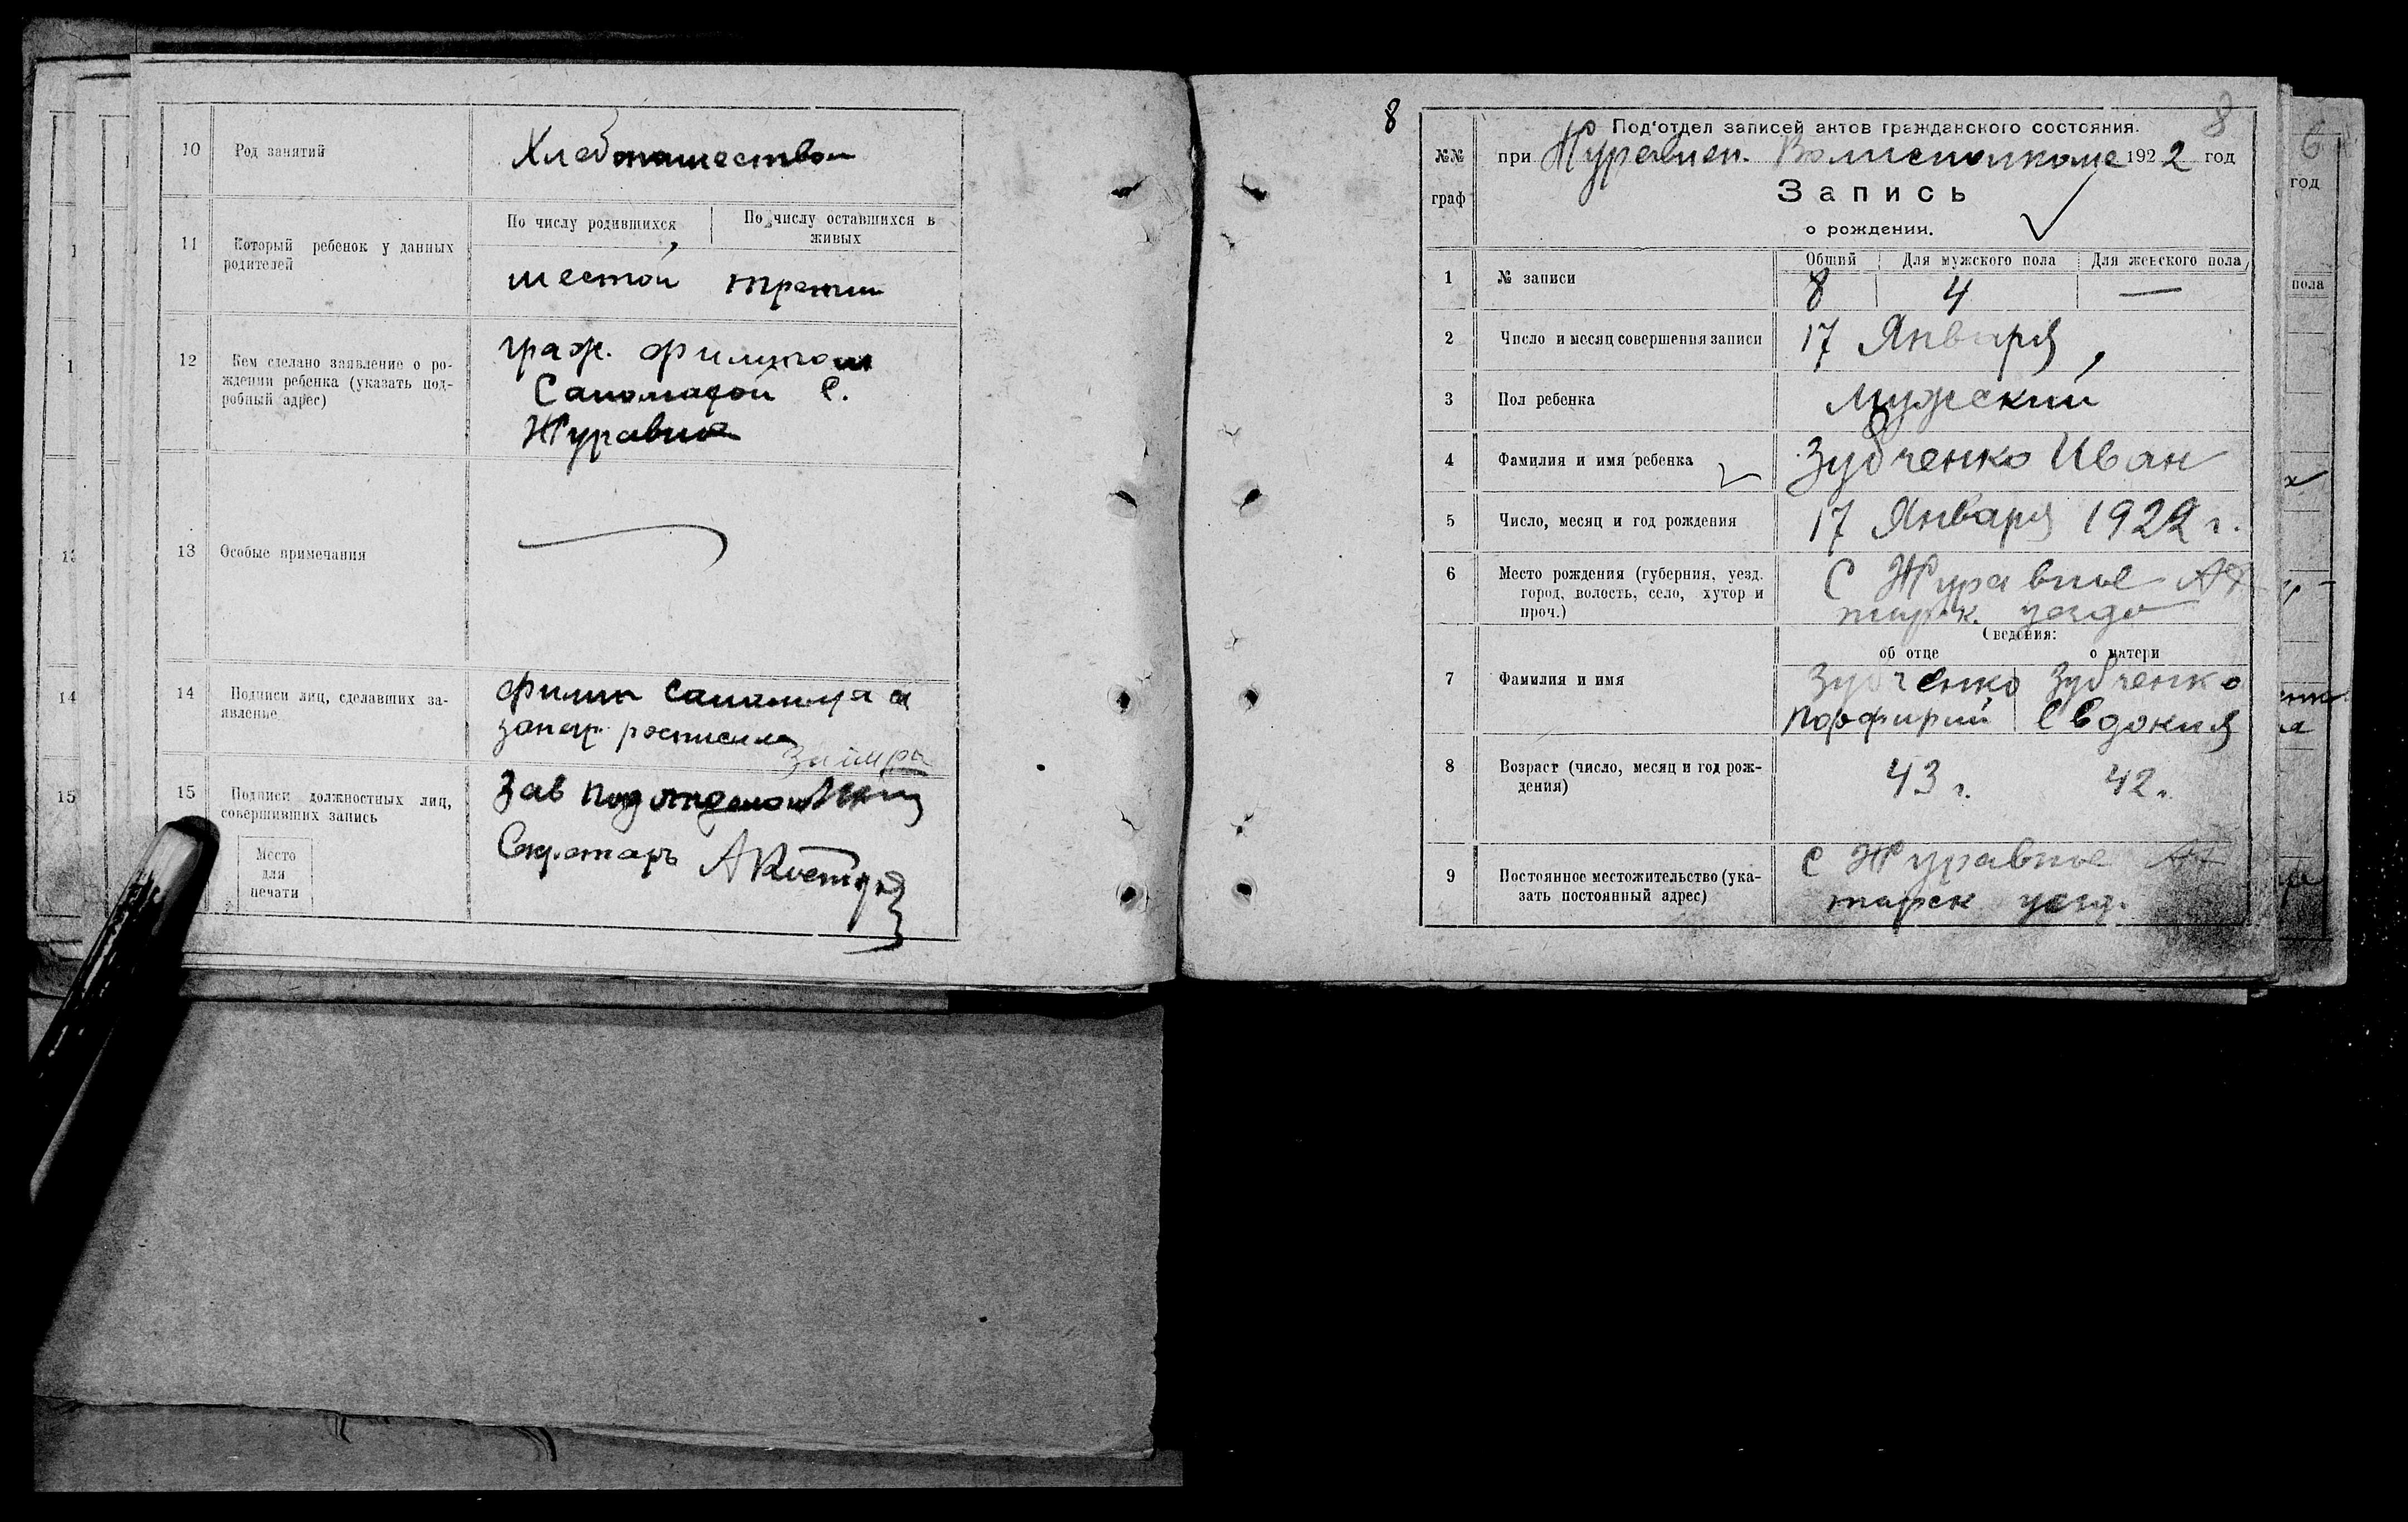 10 Род занятий Хлебопашеством
11 Который ребенок у данных родителей
По числу родившихся По числу оставшихся в живых
шестой третий
12 Кем сделано заявление о ро-
ждении ребенка (указать под-
робный адрес)
граж. Филипом
Саломахой С.
Журавка
13 Особые примечания
14 Подписи лиц, сделавших за-
явление
филип
15 Подписи должностных лиц,
совершивших запись
Зав подотделом
Секретарь
Место
для
печати
8
8
Под'отдел записей актов гражданского состояния.
№№ граф
при Журавлен. Волисполкоме 1922 год
Запись
о рождении.
Общий Для мужского пола Для женского пола
1 № записи 8 4 —
2 Число и месяц совершения записи 17 Января
3 Пол ребенка мужский
4 Фамилия и имя ребенка Зубченко Иван
5 Число, месяц и год рождения 17 Января 1922 г.
6 Место рождения (губерния, уезд,
город, волость, село, хутор и
проч.)
С
уезда
Сведения:
об отце о матери
7 Фамилия и имя
Зубченко Зубченко
Порфирий Евдокия
8 Возраст (число, месяц и год рож-
дения)
43 г. 42 г.
9 Постоянное местожительство (ука-
зать постоянный адрес)
с
тарск уезд.
6
год
пола
14
15